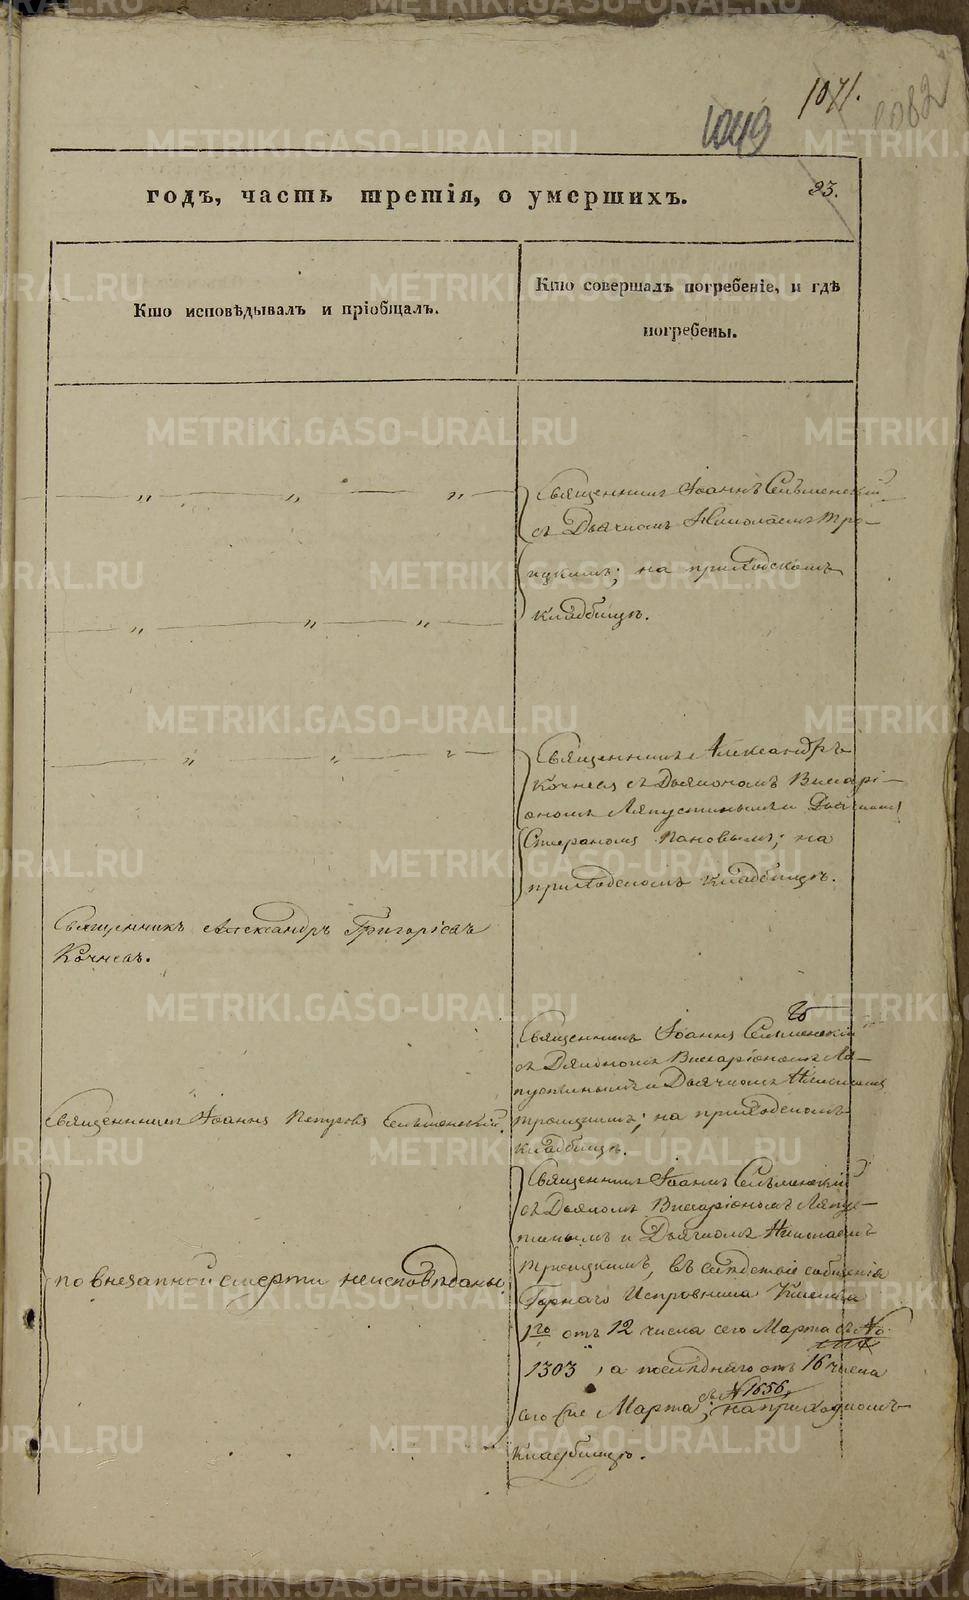 1071.
1049
1082
годъ, часть третія, о умершихъ.
23.
Кто исповѣдывалъ и пріобщалъ.
Кто совершалъ погребеніе, и гдѣ
погребены.
„ „ „
Священникъ Іоаннъ Селъменскій
съ Дьячкомъ Николаемъ Тро-
ицкимъ; на приходскомъ
кладбищѣ.
„ „ „
„ „ „
Священникъ Александръ
Кочневъ съ Дьякономъ Висарі-
ономъ Ляпустинымъ и Дьячкомъ
Стефаномъ Пановымъ; на
приходскомъ кладбищѣ.
Священникъ Александръ Григоріевъ
Кочневъ.
Священникъ Іоаннъ Селъменскій
съ Дьякономъ Висаріономъ Ля-
пустинымъ и Дьячкомъ Николаемъ
Троицкимъ; на приходскомъ
кладбищѣ.
Священникъ Іоаннъ Петровъ Селъменскій.
Священникъ Іоаннъ Селъменскій
съ Дьякономъ Висаріономъ Ляпус-
тинымъ и Дьячкомъ Николаемъ
Троицкимъ, въ слѣдствіе сообщенія
Горнаго Исправника
1го отъ 12 числа сего Марта съ №
1303, а послѣдняго отъ 16 числа
сего же Марта съ № 1656; на приходскомъ
кладбищѣ.
по внезапной смерти неисповѣданы
METRIKI.GASO-URAL.RU